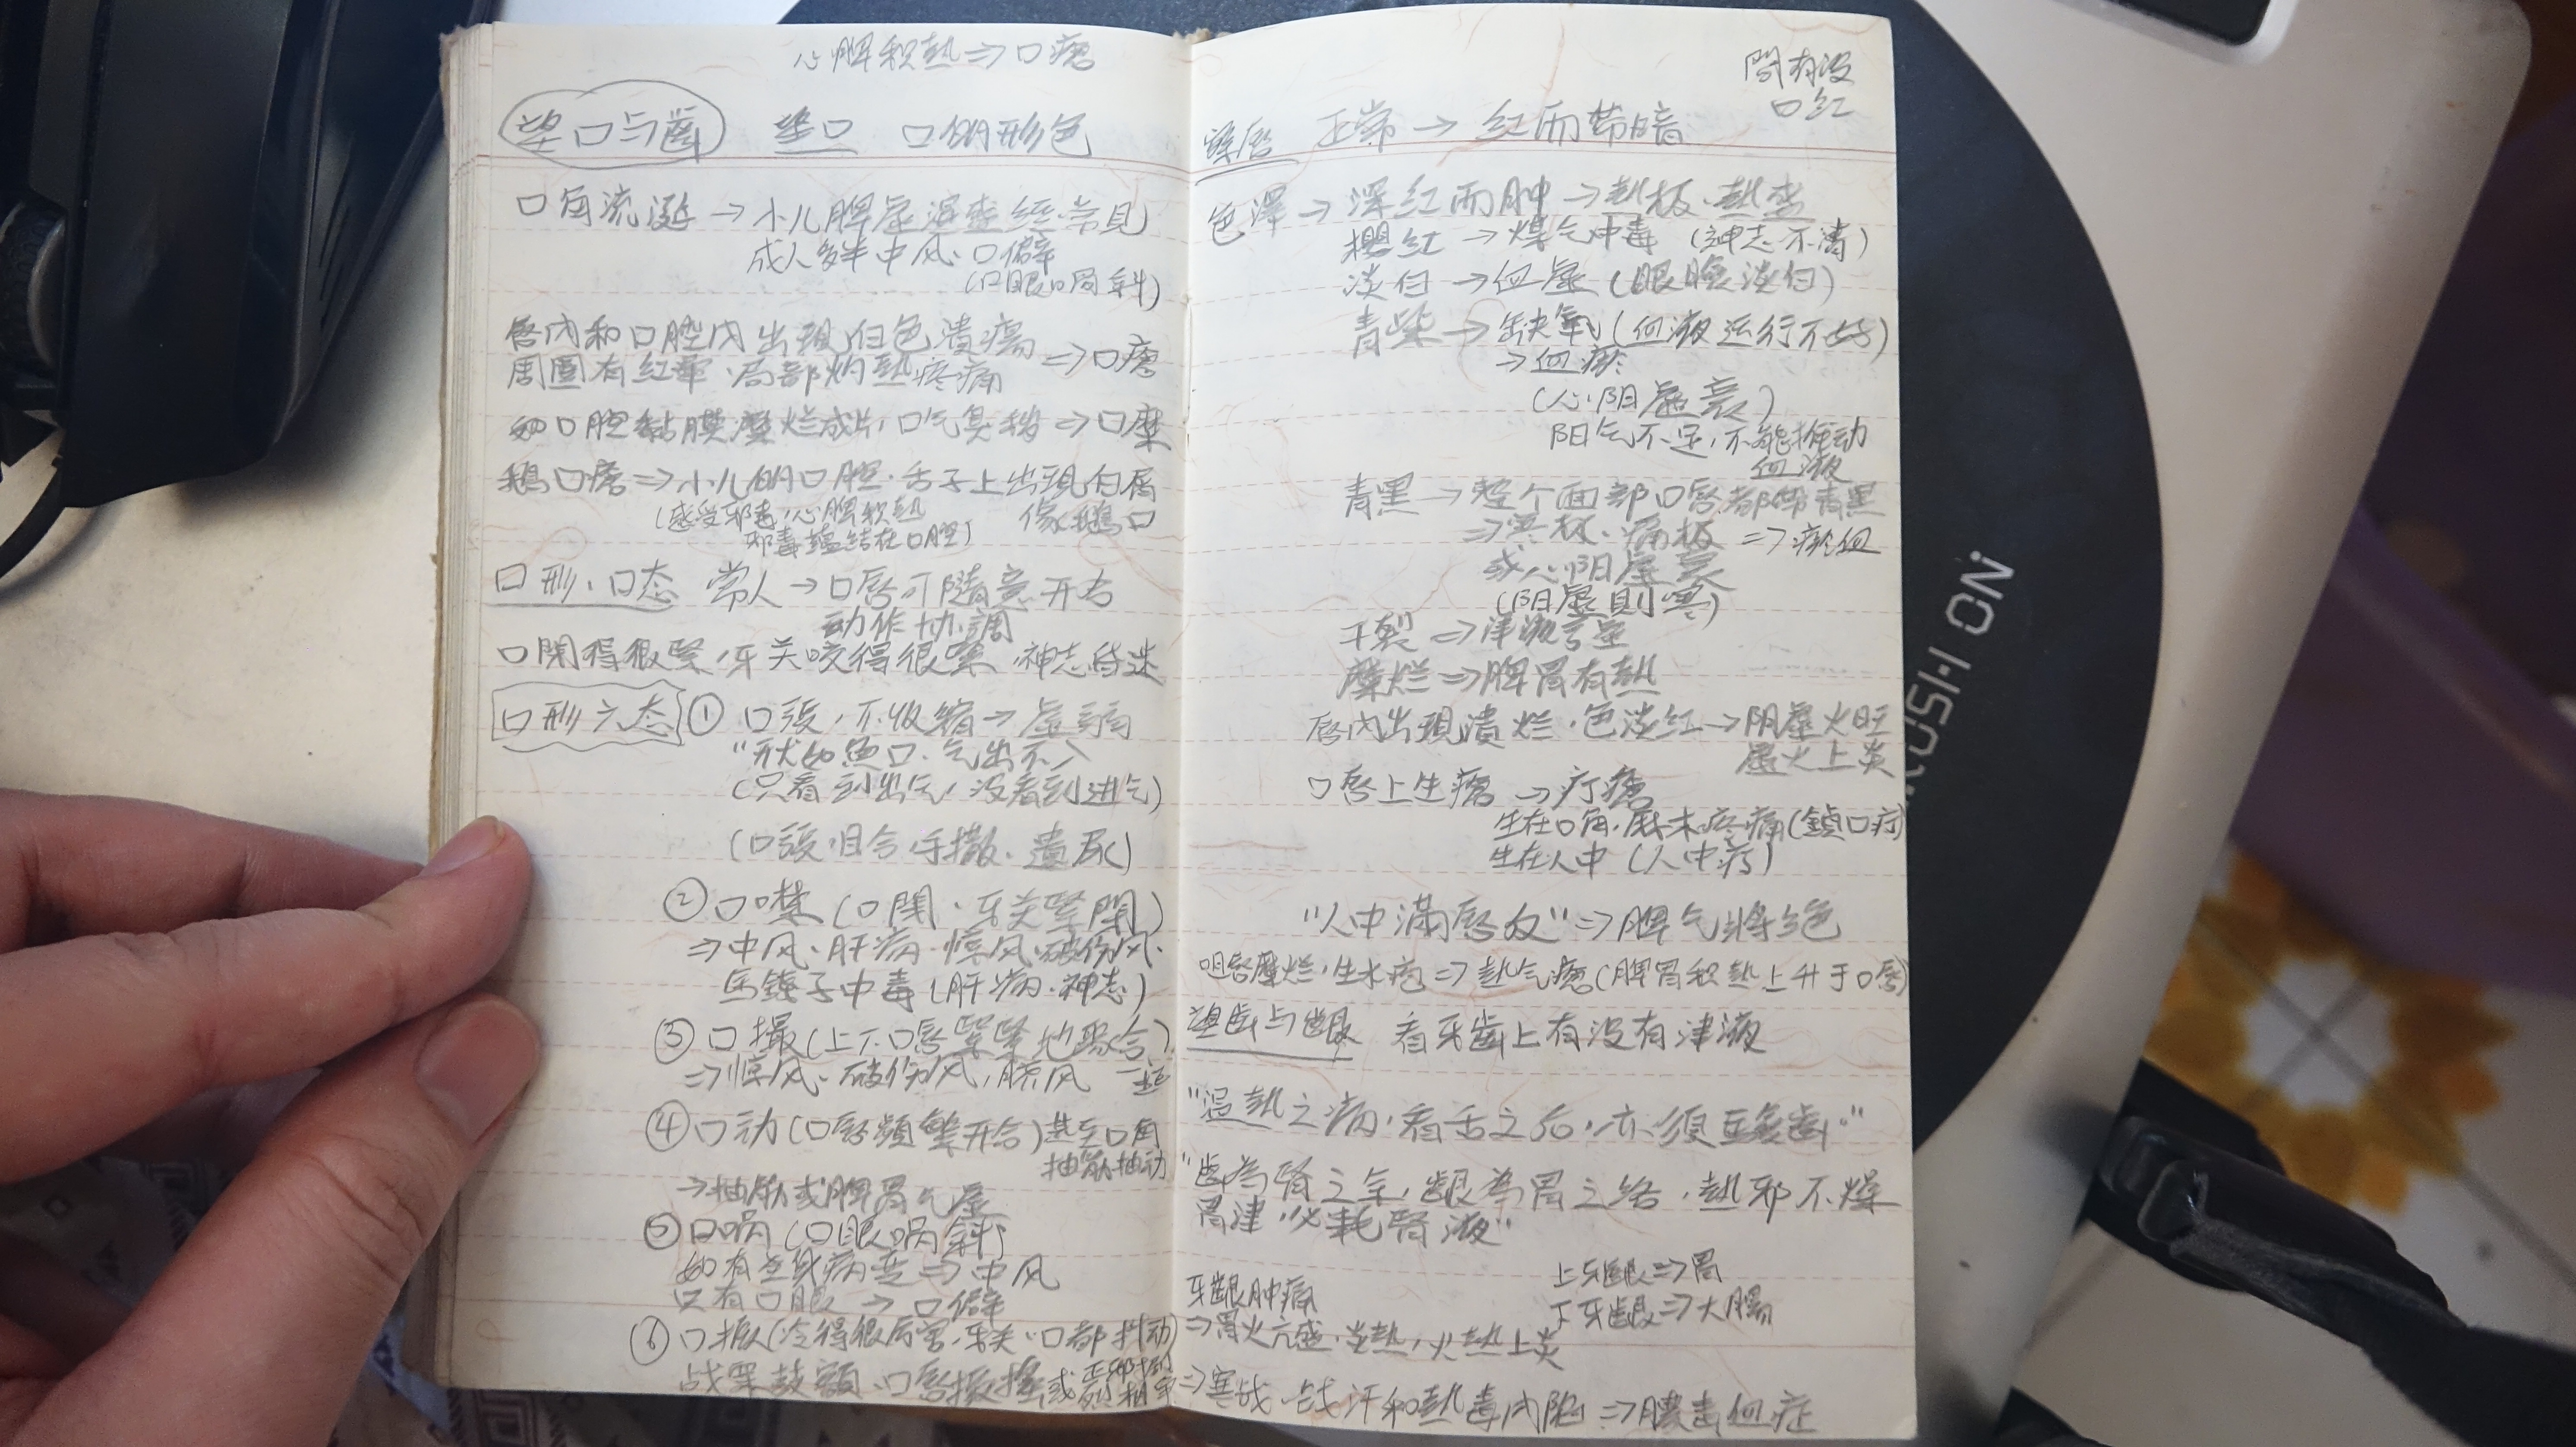 心脾积熱⇒口瘡
望口与齒 望口 口的形色
口角流涎→小儿脾虛濕盛 經常見
成人多半中风、口僻
(口眼喎斜)
唇内和口腔内出現白色潰瘍
周圍有紅暈、局部灼熱疼痛 ⇒口瘡
如口腔黏膜糜烂成片,口气臭秽⇒口糜
鵝口瘡⇒小儿的口腔、舌子上出現白屑
(感受邪毒,心脾积熱 像鵝口
邪毒蘊結在口腔)
口形、口态 常人→口唇可隨意开合
动作协調
口閉得很緊,牙关咬得很緊,神志昏迷
口形六态 ① 口張,不收縮→虛弱
"狀如魚口、气出不入
(只看到出气,没看到进气)
(口張、目合、手撒、遺尿)
② 口噤(口閉、牙关緊閉)
⇒中风、肝病、惊风、破伤风、
馬錢子中毒(肝病、神志)
③ 口撮(上下口唇緊緊地聚合)
⇒惊风、破伤风,脐风 一起
④ 口动(口唇頻繁开合)甚至口角
抽筋抽动
→抽筋或脾胃气虛
⑤ 口喎(口眼喎斜)
如有全身病变⇒中风
只有口眼→口僻
⑥ 口振(冷得很厉害,牙关、口都抖动)
战栗鼓頷、口唇振搖或
問有没
口红
察唇 正常→红而带暗
色澤→深红而肿→熱极、熱盛
櫻红→煤气中毒(神志不清)
淡白→血虛(眼瞼淡白)
青紫→缺氧(血液运行不好)
→血瘀
(心阳虛衰)
阳气不足,不能推动
血液
青黑→整个面部口唇都带青黑
⇒寒极、痛极 ⇒瘀血
或心阳虛衰
(阳虛則寒)
干裂⇒津液亏虚
糜烂⇒脾胃有熱
唇内出現潰烂、色淡红→阴虛火旺
虛火上炎
口唇上生瘡→疔瘡
生在口角、麻木疼痛(鎖口疔)
生在人中(人中疔)
"人中滿唇反"⇒脾气將絕
口唇糜烂,生水疱⇒熱气瘡(脾胃积熱上升于口唇)
望齒与齦 看牙齒上有没有津液
"溫熱之病,看舌之后,亦須驗齒。"
"齒為腎之余,齦為胃之絡,熱邪不燥
胃津"必耗腎液"
上牙齦⇒胃
下牙齦⇒大腸
牙齦肿痛
⇒胃火亢盛、炎熱,火熱上炎
⇒寒战、战汗和熱毒内陷⇒膿毒血症
KRUSH ON